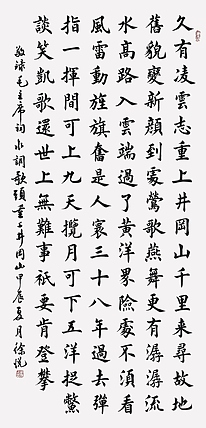 久有凌雲志重上井岡山千里來尋故地
舊貌變新顏到處鶯歌燕舞更有潺潺流
水高路入雲端過了黃洋界險處不須看
風雷動旌旗奮是人寰三十八年過去彈
指一揮間可上九天攬月可下五洋捉鱉
談笑凱歌還世上無難事祇要肯登攀
敬錄毛主席詞水調歌頭重上井岡山甲辰夏月徐悦